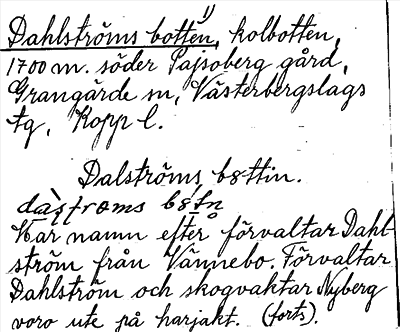 Dahlströms botten, 1) kolbotten,
1700 m. söder Pajsoberg gård,
Grangärde sn, Västerbergslags
tg, Kopp l.
Dalströms bȣttin.
Har namn efter förvaltar Dahl-
ström från Vännebo. Förvaltar
Dahlström och skogvaktar Nyberg
voro ute på harjakt. (forts).